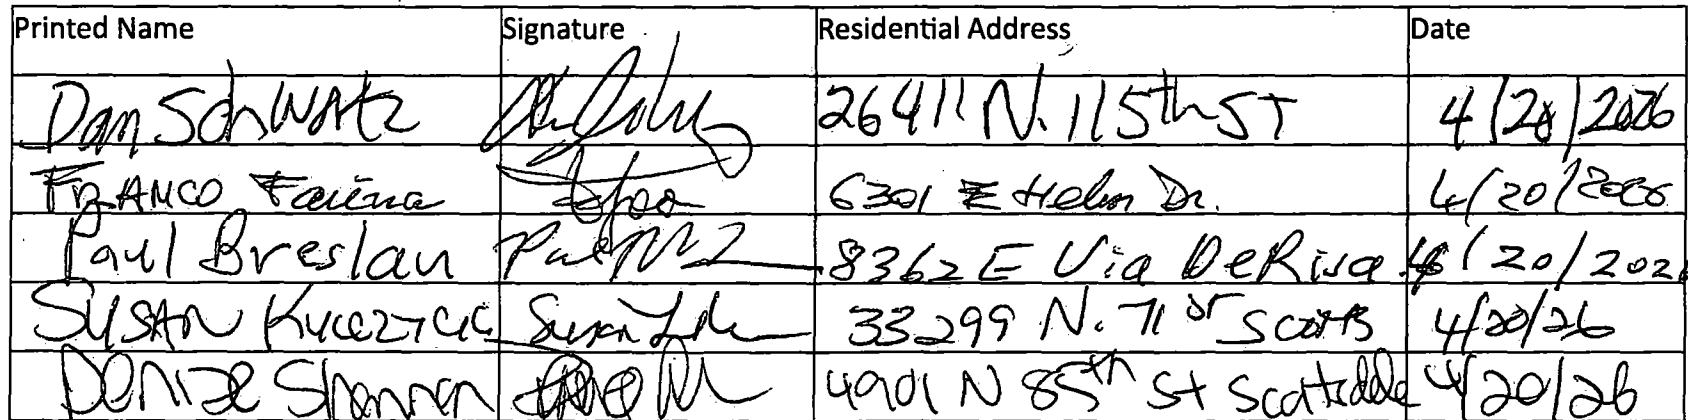 Printed Name Signature Residential Address Date
Dan Schwartz 26411 N. 115th ST 4/20/2026
FRANCO Farina 6301 E Helm Dr. 4/20/2026
Paul Breslau 8362 E Via DeRisa 4/20/202
SUSAN 33299 N. 71 ST Scotts 4/20/26
Denise Shannon 4901 N 85th St Scottsdale 4/20/26